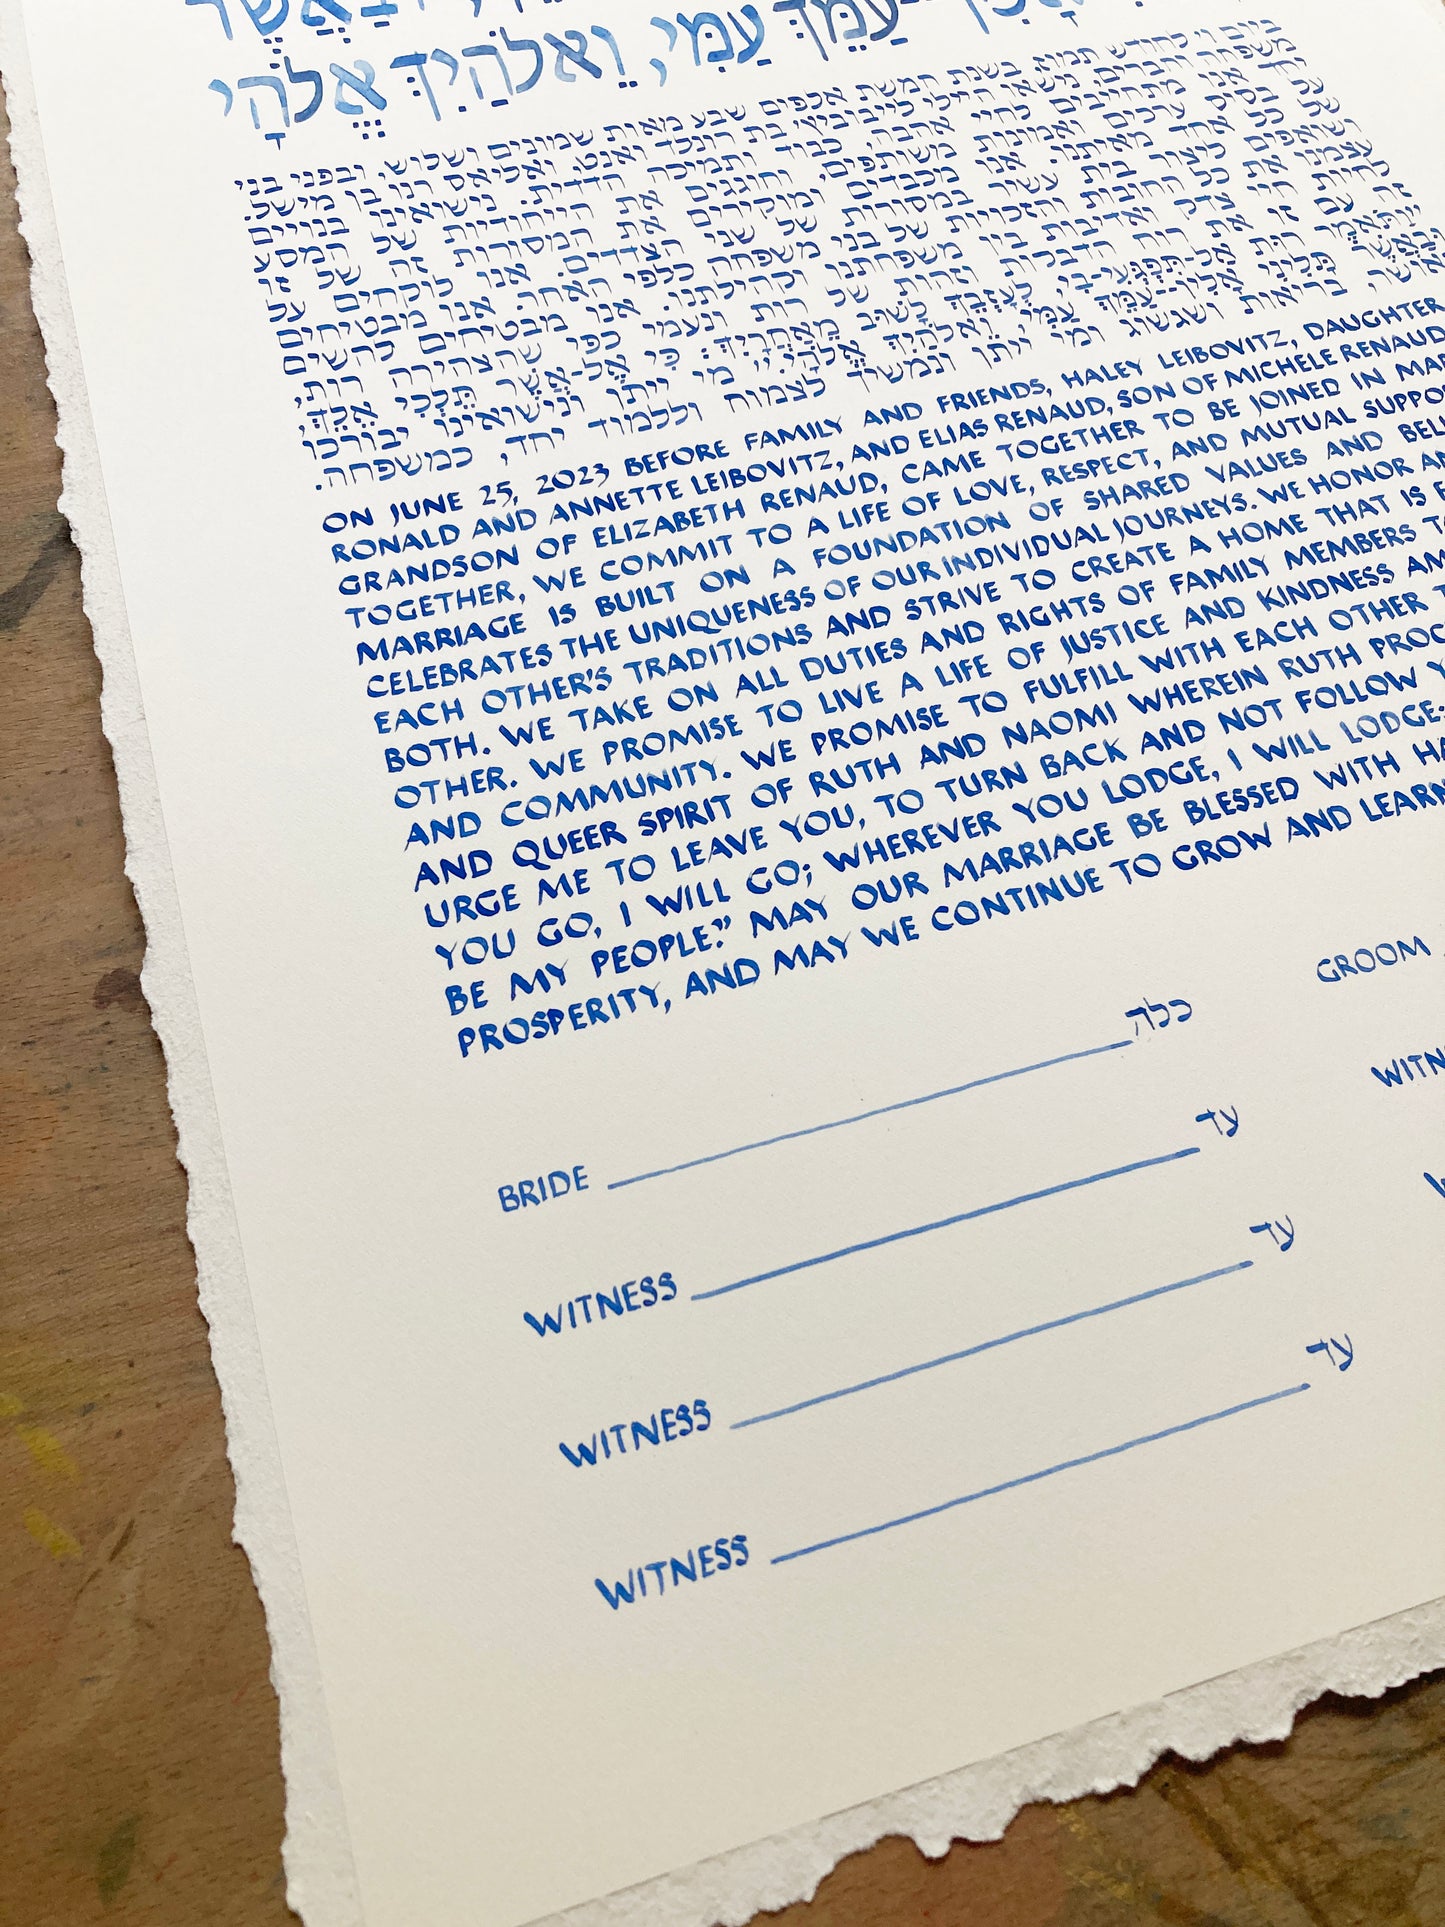 עַמֵּךְ עַמִּי, וֵאלֹהַיִךְ אֱלֹהָי
ביום ו׳ לחודש תמוז, בשנת חמשת אלפים שבע מאות שמונים ושלוש, ובפני בני
משפחה וחברים, נישאו היילי לייבוביץ׳ בת רונלד ואנט, ואליאס רנו בן מישל.
יחד אנו מתחייבים לחיי אהבה, כבוד ותמיכה הדדית. נישואינו בנויים
על בסיס ערכים ואמונות משותפים, וחוגגים את הייחודיות של המסע
של כל אחד מאיתנו. אנו מכבדים ומוקירים את המסורות זה של זו
ושואפים ליצור בית עשיר במסורות של שני הצדדים. אנו לוקחים על
עצמנו את כל החובות והזכויות של בני משפחה כלפי האחר. אנו מבטיחים
לחיות חיי צדק ואדיבות בין משפחתנו וקהילתנו. אנו מבטיחים להשים
זה עם זו את רוח הדבקות וזהות של רות ונעמי כפי שהצהירה רות,
״וַתֹּאמֶר רוּת אַל־תִּפְגְּעִי־בִי, לְעָזְבֵךְ לָשׁוּב מֵאַחֲרָיִךְ: כִּי אֶל־אֲשֶׁר תֵּלְכִי אֵלֵךְ,
וּבַאֲשֶׁר תָּלִינִי אָלִין־עַמֵּךְ עַמִּי, וֵאלֹהַיִךְ אֱלֹהָי.״ מי ייתן ונישואינו יבורכו
באושר, בריאות ושגשוג ומי ייתן ונמשיך לצמוח וללמוד יחד, כמשפחה.
ON JUNE 25, 2023 BEFORE FAMILY AND FRIENDS, HALEY LEIBOVITZ, DAUGHTER
RONALD AND ANNETTE LEIBOVITZ, AND ELIAS RENAUD, SON OF MICHELE RENAUD
GRANDSON OF ELIZABETH RENAUD, CAME TOGETHER TO BE JOINED IN
TOGETHER, WE COMMIT TO A LIFE OF LOVE, RESPECT, AND MUTUAL
MARRIAGE IS BUILT ON A FOUNDATION OF SHARED VALUES AND
CELEBRATES THE UNIQUENESS OF OUR INDIVIDUAL JOURNEYS. WE HONOR
EACH OTHER'S TRADITIONS AND STRIVE TO CREATE A HOME THAT IS
BOTH. WE TAKE ON ALL DUTIES AND RIGHTS OF FAMILY MEMBERS
OTHER. WE PROMISE TO LIVE A LIFE OF JUSTICE AND KINDNESS
AND COMMUNITY. WE PROMISE TO FULFILL WITH EACH OTHER
AND QUEER SPIRIT OF RUTH AND NAOMI WHEREIN RUTH
URGE ME TO LEAVE YOU, TO TURN BACK AND NOT FOLLOW
YOU GO, I WILL GO; WHEREVER YOU LODGE, I WILL LODGE;
BE MY PEOPLE." MAY OUR MARRIAGE BE BLESSED WITH
PROSPERITY, AND MAY WE CONTINUE TO GROW AND LEARN
BRIDE כלה GROOM
WITNESS עד
WITNESS עד
WITNESS עד